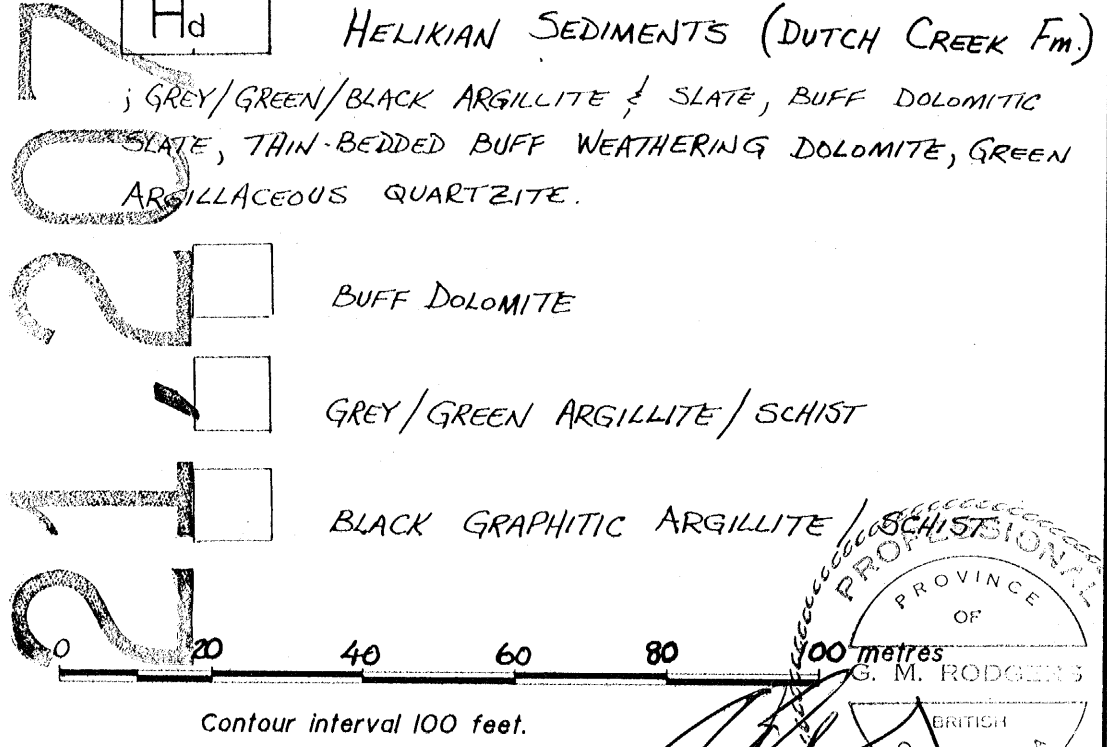 Hd
HELIKIAN SEDIMENTS (DUTCH CREEK Fm.)
; GREY/GREEN/BLACK ARGILLITE & SLATE, BUFF DOLOMITIC
SLATE, THIN-BEDDED BUFF WEATHERING DOLOMITE, GREEN
ARGILLACEOUS QUARTZITE.
BUFF DOLOMITE
GREY/GREEN ARGILLITE/SCHIST
BLACK GRAPHITIC ARGILLITE/SCHIST
0 20 40 60 80 100 metres
Contour interval 100 feet.
PROFESSIONAL
PROVINCE
OF
G. M. RODGERS
BRITISH
21,207